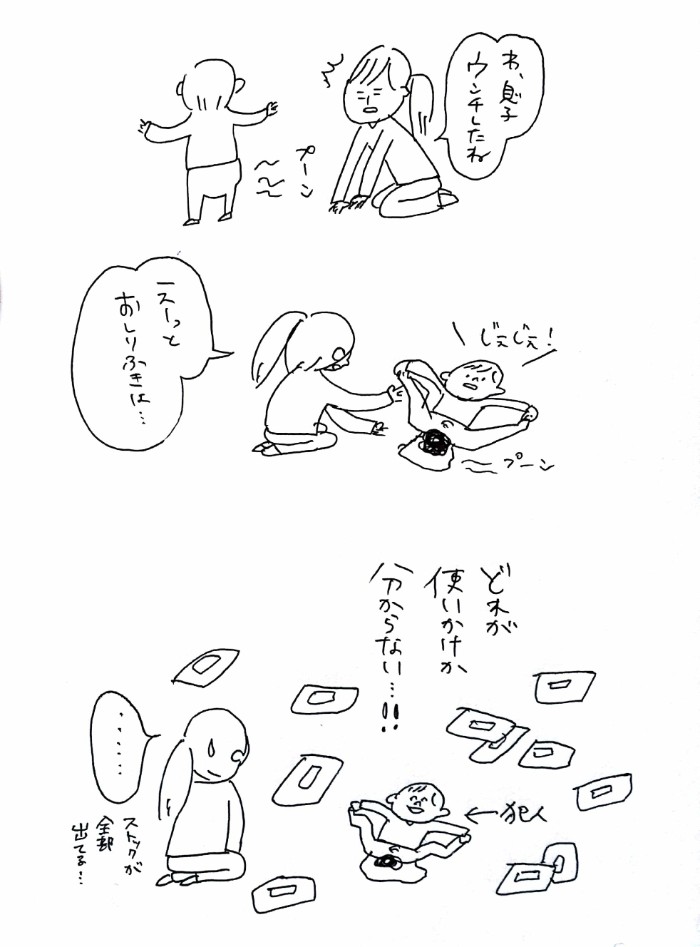 わ、息子
ウンチしたね
プーン
じぇじぇ!
えーっと
おしりふきは…
プーン
どれが
使いかけか
分からない…!!
……
ストックが
全部
出てる…
←犯人